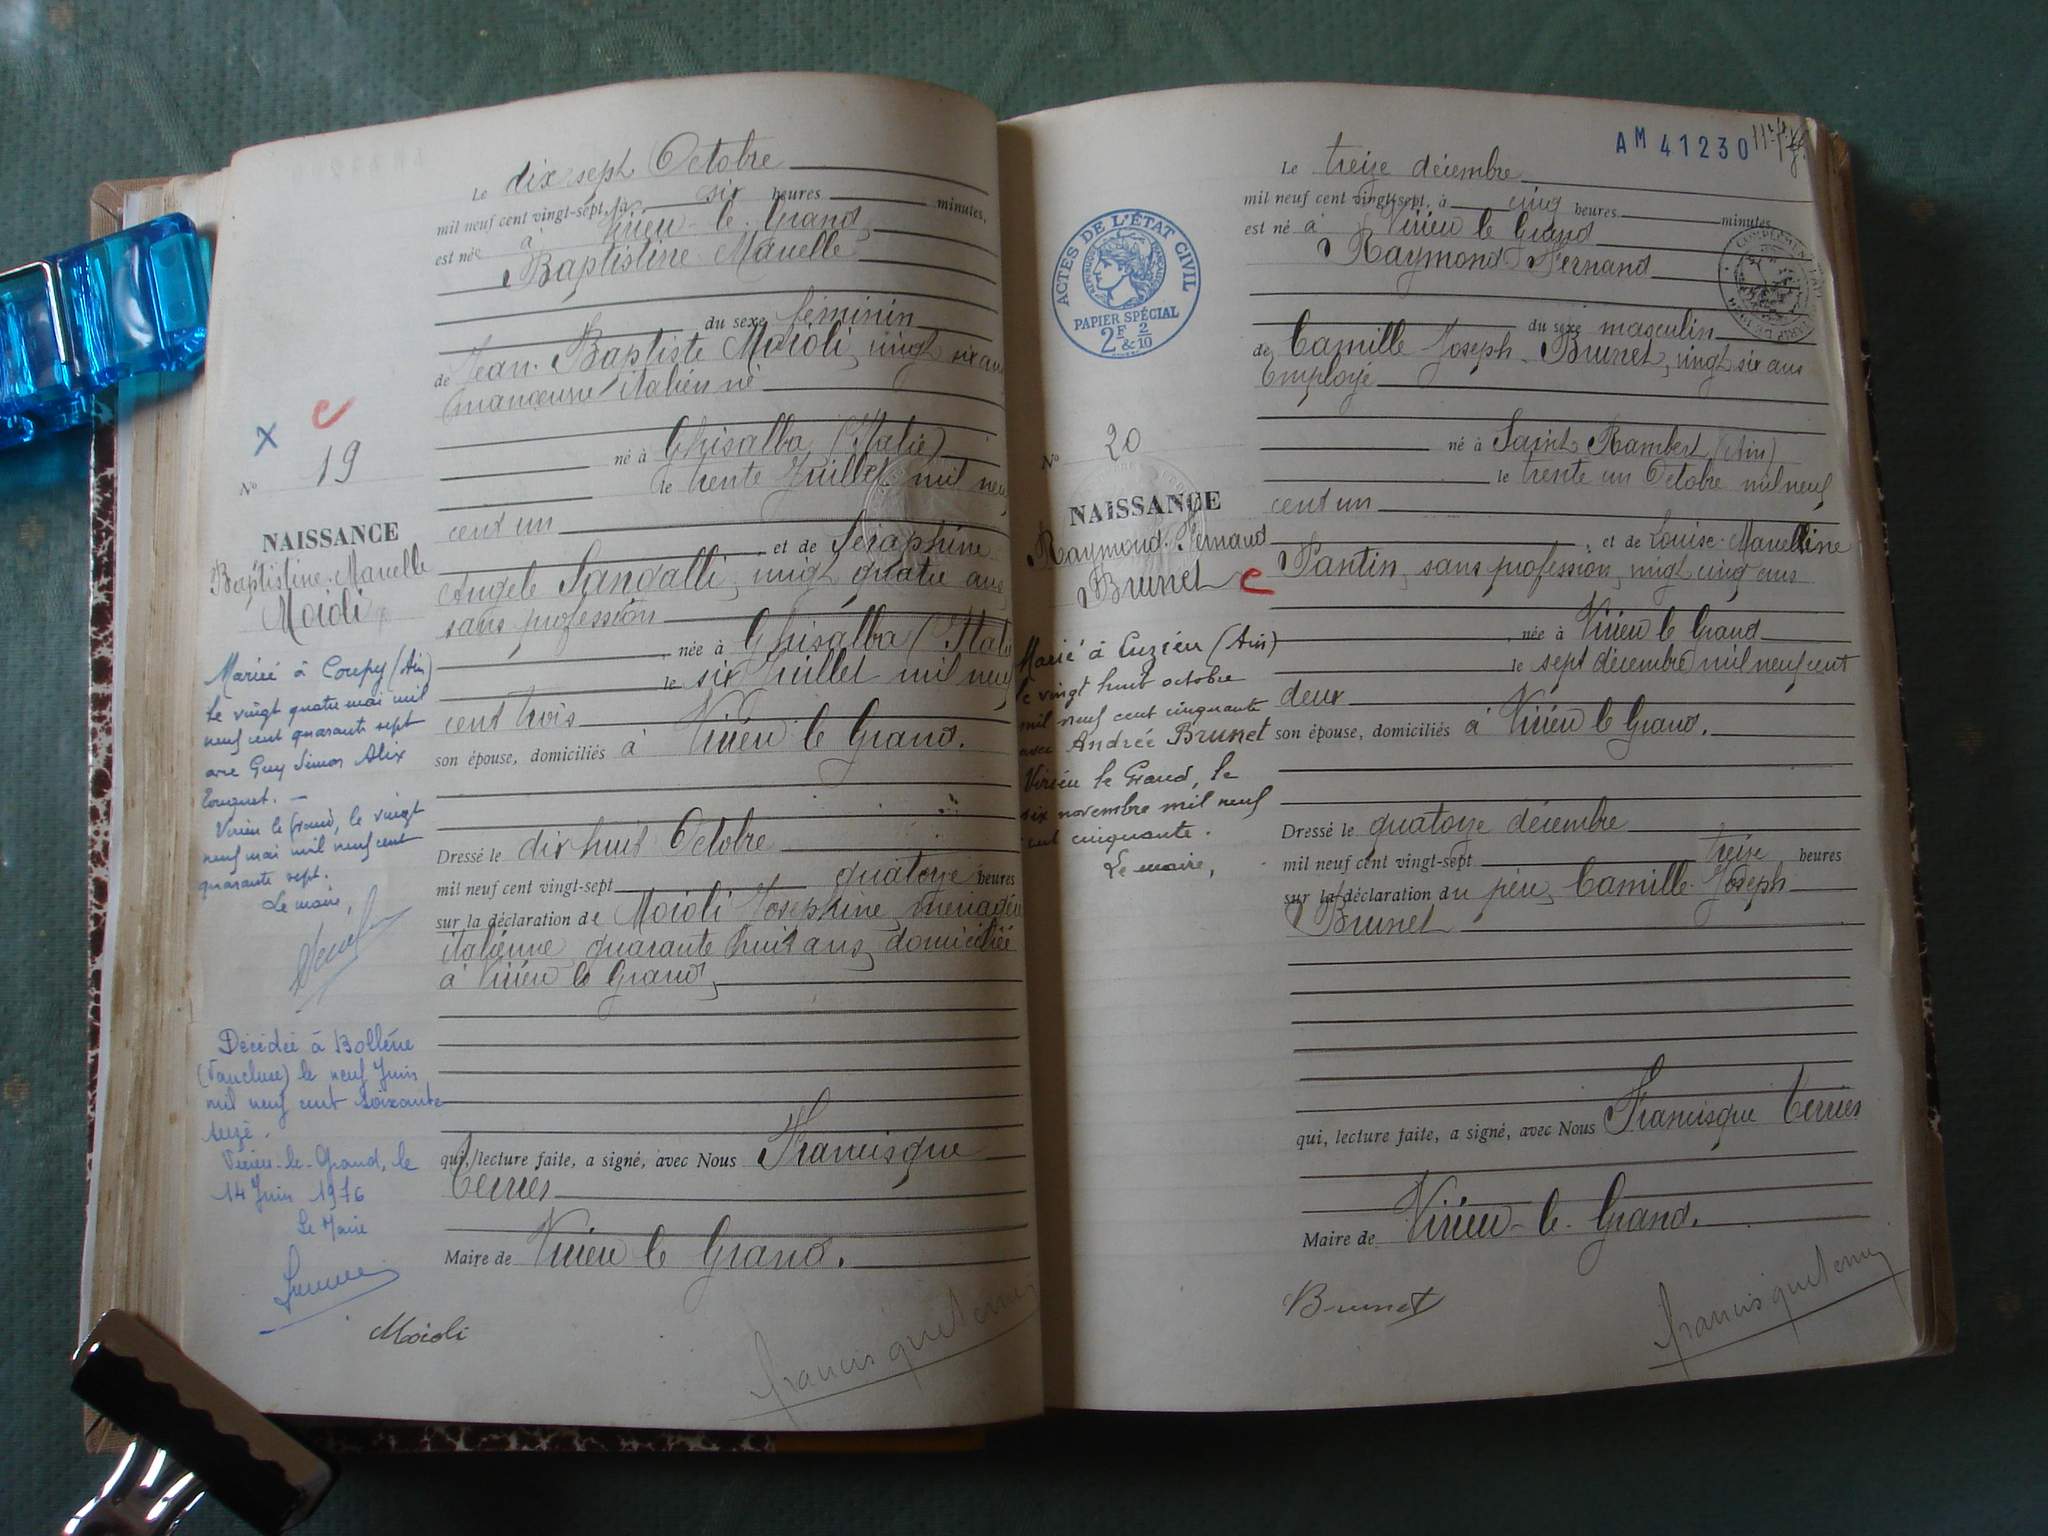 Le dix sept Octobre
mil neuf cent vingt-sept, à six heures minutes,
est née à Virieu-le-Grand
Baptistine Marielle
du sexe féminin
de Jean-Baptiste Moioli, vingt six ans
manœuvre italien né
né à Ghisalba (Italie)
le trente Juillet mil neuf
cent un
et de Séraphine
Angèle Sangalli, vingt quatre ans,
sans profession
née à Ghisalba (Italie
le six Juillet mil neuf
cent trois
son épouse, domiciliés à Virieu le Grand.
Dressé le dix huit Octobre
mil neuf cent vingt-sept quatorze heures
sur la déclaration de Moioli Joséphine, ménagère
italienne, quarante huit ans, domiciliée
à Virieu le Grand,
qui, lecture faite, a signé, avec Nous Francisque
Terrier
Maire de Virieu le Grand.
Moioli
X C
No 19
NAISSANCE
Baptistine-Marielle
Moioli
Mariée à Coupy (Ain)
le vingt quatre mai mil
neuf cent quarante sept
avec Guy Simon Alix
Virieu le Grand, le vingt
neuf mai mil neuf cent
quarante sept.
Le maire,
Décédée à Bollène
(Vaucluse) le neuf Juin
mil neuf cent soixante
seize.
Virieu-le-Grand, le
14 Juin 1976
Le Maire
AM 41230
Le treize décembre
mil neuf cent vingt-sept, à cinq heures minutes
est né à Virieu le Grand
Raymond Fernand
du sexe masculin
de Camille Joseph Brunet, vingt six ans
Employé
né à Saint Rambert (Ain)
le trente un Octobre mil neuf
cent un
et de Louise-Marielline
Pantin, sans profession, vingt cinq ans
née à Virieu le Grand
le sept décembre mil neuf cent
deux
son épouse, domiciliés à Virieu le Grand.
Dressé le quatorze décembre
mil neuf cent vingt-sept treize heures
sur la déclaration du père, Camille Joseph
Brunet
qui, lecture faite, a signé, avec Nous Francisque Terrier
Maire de Virieu-le-Grand.
Brunet
ACTES DE L'ÉTAT CIVIL
RÉPUBLIQUE FRANÇAISE
PAPIER SPÉCIAL
2F & 2/10
No 20
NAISSANCE
Raymond-Fernand
Brunet C
Marié à Cuzieu (Ain)
le vingt huit octobre
mil neuf cent cinquante
avec Andrée Brunet
Virieu le Grand, le
six novembre mil neuf
cent cinquante.
Le maire,